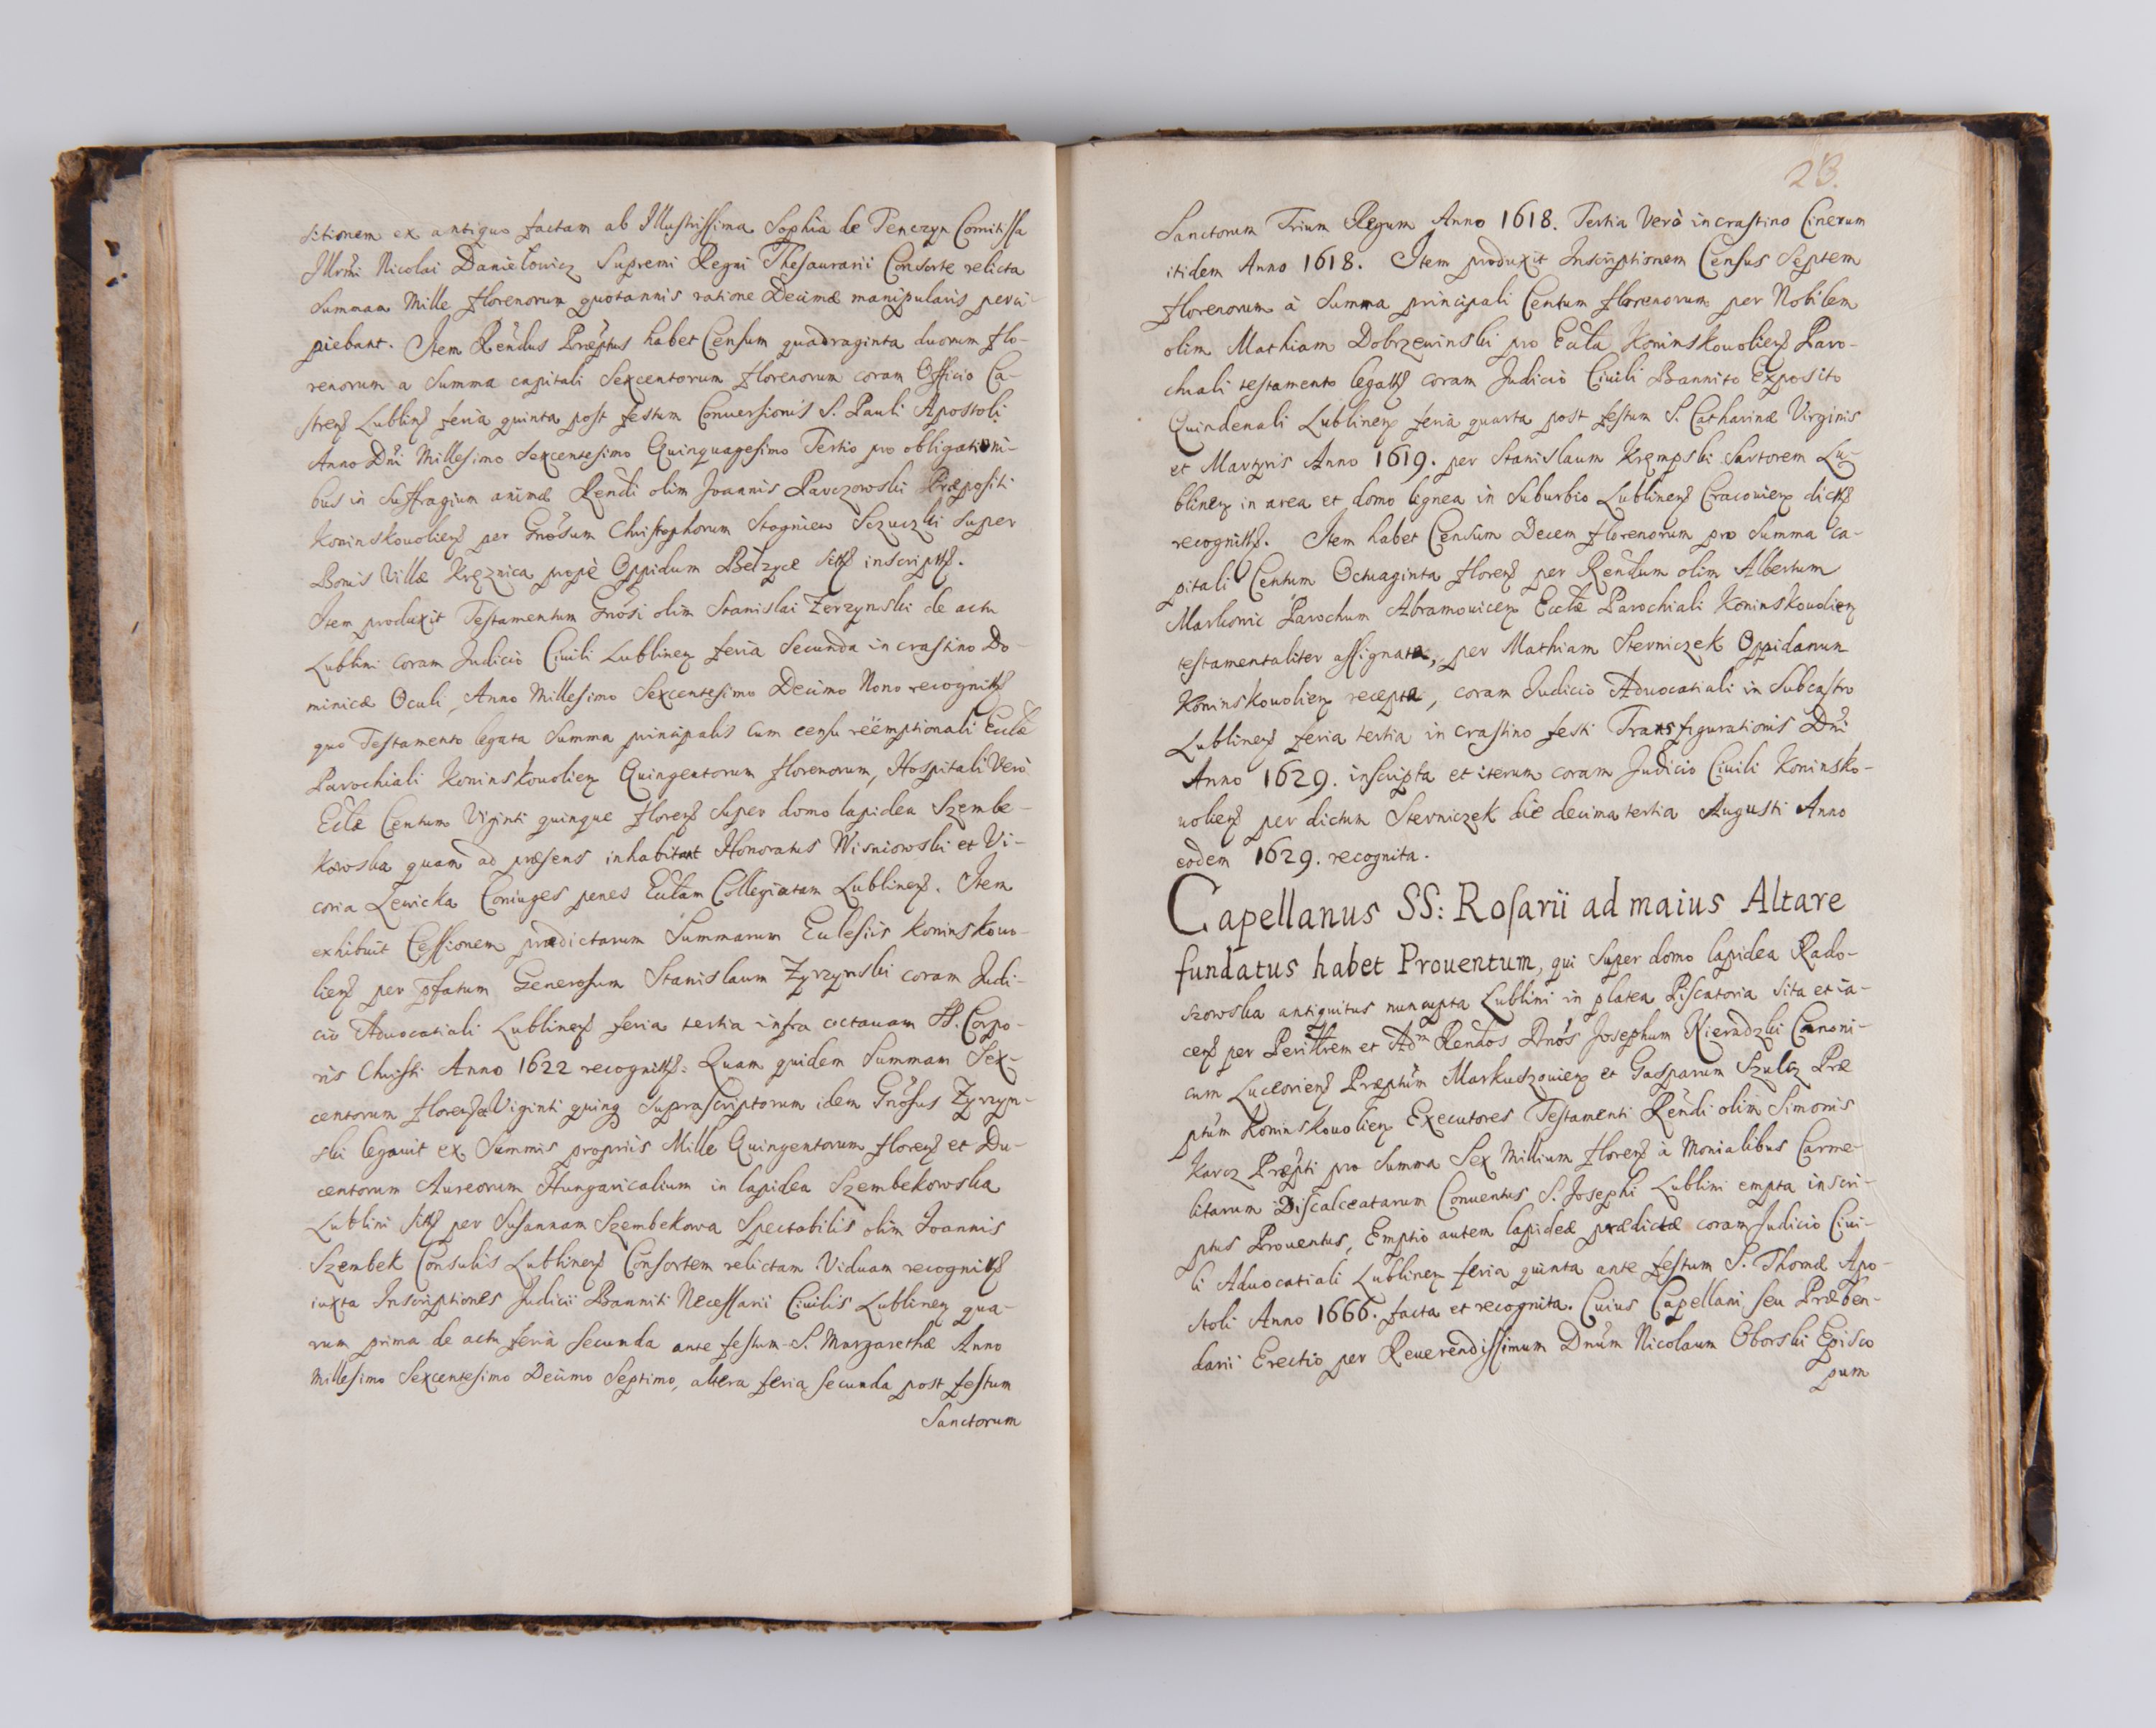 sitionem ex antiquo factam ab Illustrissima Sophia de Tenczyn Comitissa
Illrmi Nicolai Daniełowicz Supremi Regni Thesaurarii Consorte relicta
Summam Mille florenorum quotannis ratione Decimæ manipularis perci-
piebant. Item Rendus Præptus habet Censum quadraginta duorum flo-
renorum a Summa capitali Sexcentorum florenorum coram Officio Ca-
stren Lublin feria quinta post festum Conuersionis S. Pauli Apostoli
Anno Dni Millesimo Sexcentesimo Quinquagesimo Tertio pro obligationi-
bus in Suffragium animæ Rendi olim Joannis Parczowski Præpositi
Koninskouolien per Gnosum Christophorum Stogniew Sczuczki super
Bonis Villæ Kręznica propè Oppidum Bełzyce sitis inscript.
Item produxit Testamentum Gnosi olim Stanislai Zerzynski de actu
Lublini coram Judicio Ciuili Lublinen feria Secunda in crastino Do-
minicæ Oculi, Anno Millesimo Sexcentesimo Decimo Nono recognit
quo Testamento legata Summa principalis cum censu reëmptionali Ecclæ
Parochiali Koninskouolien Quingentorum florenorum, Hospitali Verò
Eclæ Centum Viginti quinque floren super domo lapidea Szembe-
kowska quam ad præsens inhabitant Honoratus Wisniowski et Vi-
coria Lewicka Coniuges penes Ecclam Collegiatam Lublinen. Item
exhibuit Cessionem prædictarum Summarum Eclesiis Koninskouo-
lien per pfatum Generosum Stanislaum Zyrzynski coram Judi-
cio Aduocatiali Lublinen feria tertia infra octauam SS. Corpo-
ris Christi Anno 1622 recognit: Quam quidem Summam Sex-
centorum floren Viginti quinq supra scriptorum idem Gnosus Zyrzyn-
ski legauit ex Summis propriis Mille Quingentorum floren et Du-
centorum Aureorum Hungaricalium in lapidea Szembekowska
Lublini sit per Susannam Szembekowa Spectabilis olim Joannis
Szembek Consulis Lublinen Consortem relictam Viduam recognit
iuxta Inscriptiones Judicii Banniti Necessarii Ciuilis Lublinen qua-
rum prima de actu feria Secunda ante festum S. Margarethæ Anno
Millesimo Sexcentesimo Decimo Septimo, altera feria secunda post festum
Sanctorum
23.
Sanctorum Trium Regum Anno 1618. Tertia Verò in crastino Cinerum
itidem Anno 1618. Item produxit Inscriptionem Census Septem
florenorum à Summa principali Centum florenorum per Nobilem
olim Mathiam Dobrzewinski pro Eccla Koninskouolien Paro-
chiali testamento legat coram Judicio Ciuili Bannito Exposito
Quindenali Lublinen feria quarta post festum S. Catharinæ Virginis
et Martyris Anno 1619. per Stanislaum Krempski Sartorem Lu-
blinen in area et domo lignea in Suburbio Lublinen Cracouien dict
recognit. Item habet Censum Decem florenorum pro Summa ca-
pitali Centum Octuaginta floren per Rendum olim Albertum
Markonic Parochum Abramouicen Ecclæ Parochiali Koninskouolien
testamentaliter assignata, per Mathiam Sterniczek Oppidanum
Koninskouolien recepta, coram Judicio Aduocatiali in Subcastro
Lublinen feria tertia in crastino festi Transfigurationis Dni
Anno 1629. inscripta et iterum coram Judicio Ciuili Koninsko-
uolien per dictum Sterniczek die decima tertia Augusti Anno
eodem 1629. recognita.
Capellanus SS: Rosarii ad maius Altare
fundatus habet Prouentum, qui super domo lapidea Rado-
szowska antiquitus nuncupta Lublini in platea Piscatoria sita et ia-
cen per Perillrem et Adm Rendos Dnos Josephum Nieradzki Canoni-
cum Luceorien Præptum Markuszouien et Gasparum Szulcz Præ
ptum Koninskouolien Executores Testamenti Rendi olim Simonis
Karcz Præpti pro Summa Sex Millium floren à Monialibus Carme-
litarum Discalceatarum Conuentus S. Josephi Lublini empta inscri-
ptus Prouentus, Emptio autem lapideæ prædictæ coram Judicio Ciui-
li Aduocatiali Lublinen feria quinta ante festum S. Thomæ Apo-
stoli Anno 1666. facta et recognita. Cuius Capellani seu Præben-
darii Erectio per Reuerendissimum Dnum Nicolaum Oborski Episco
pum